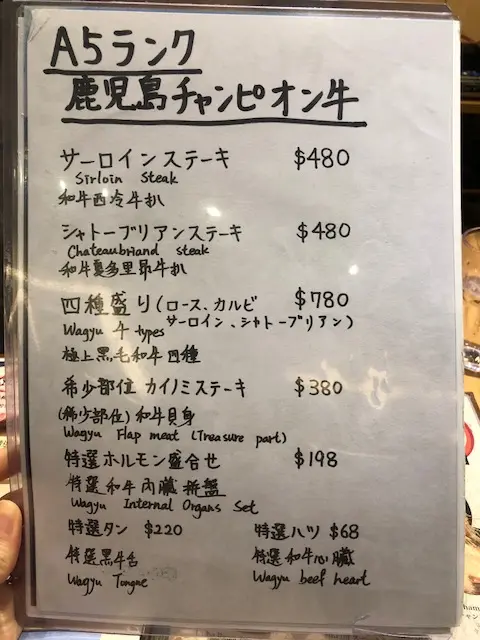 A5ランク
鹿児島チャンピオン牛
サーロインステーキ $480
Sirloin Steak
和牛西冷牛扒
シャトーブリアンステーキ $480
Chateaubriand steak
和牛夏多里昂牛扒
四種盛り(ロース、カルビ $780
サーロイン、シャトーブリアン)
Wagyu 4 types
極上黒毛和牛四種
希少部位 カイノミステーキ $380
(稀少部位)和牛貝身
Wagyu Flap meat (Treasure part)
特選ホルモン盛合せ $198
特選和牛內臟拼盤
Wagyu Internal Organs Set
特選タン $220 特選ハツ $68
特選黒牛舌 特選和牛心臟
Wagyu Tongue Wagyu beef heart